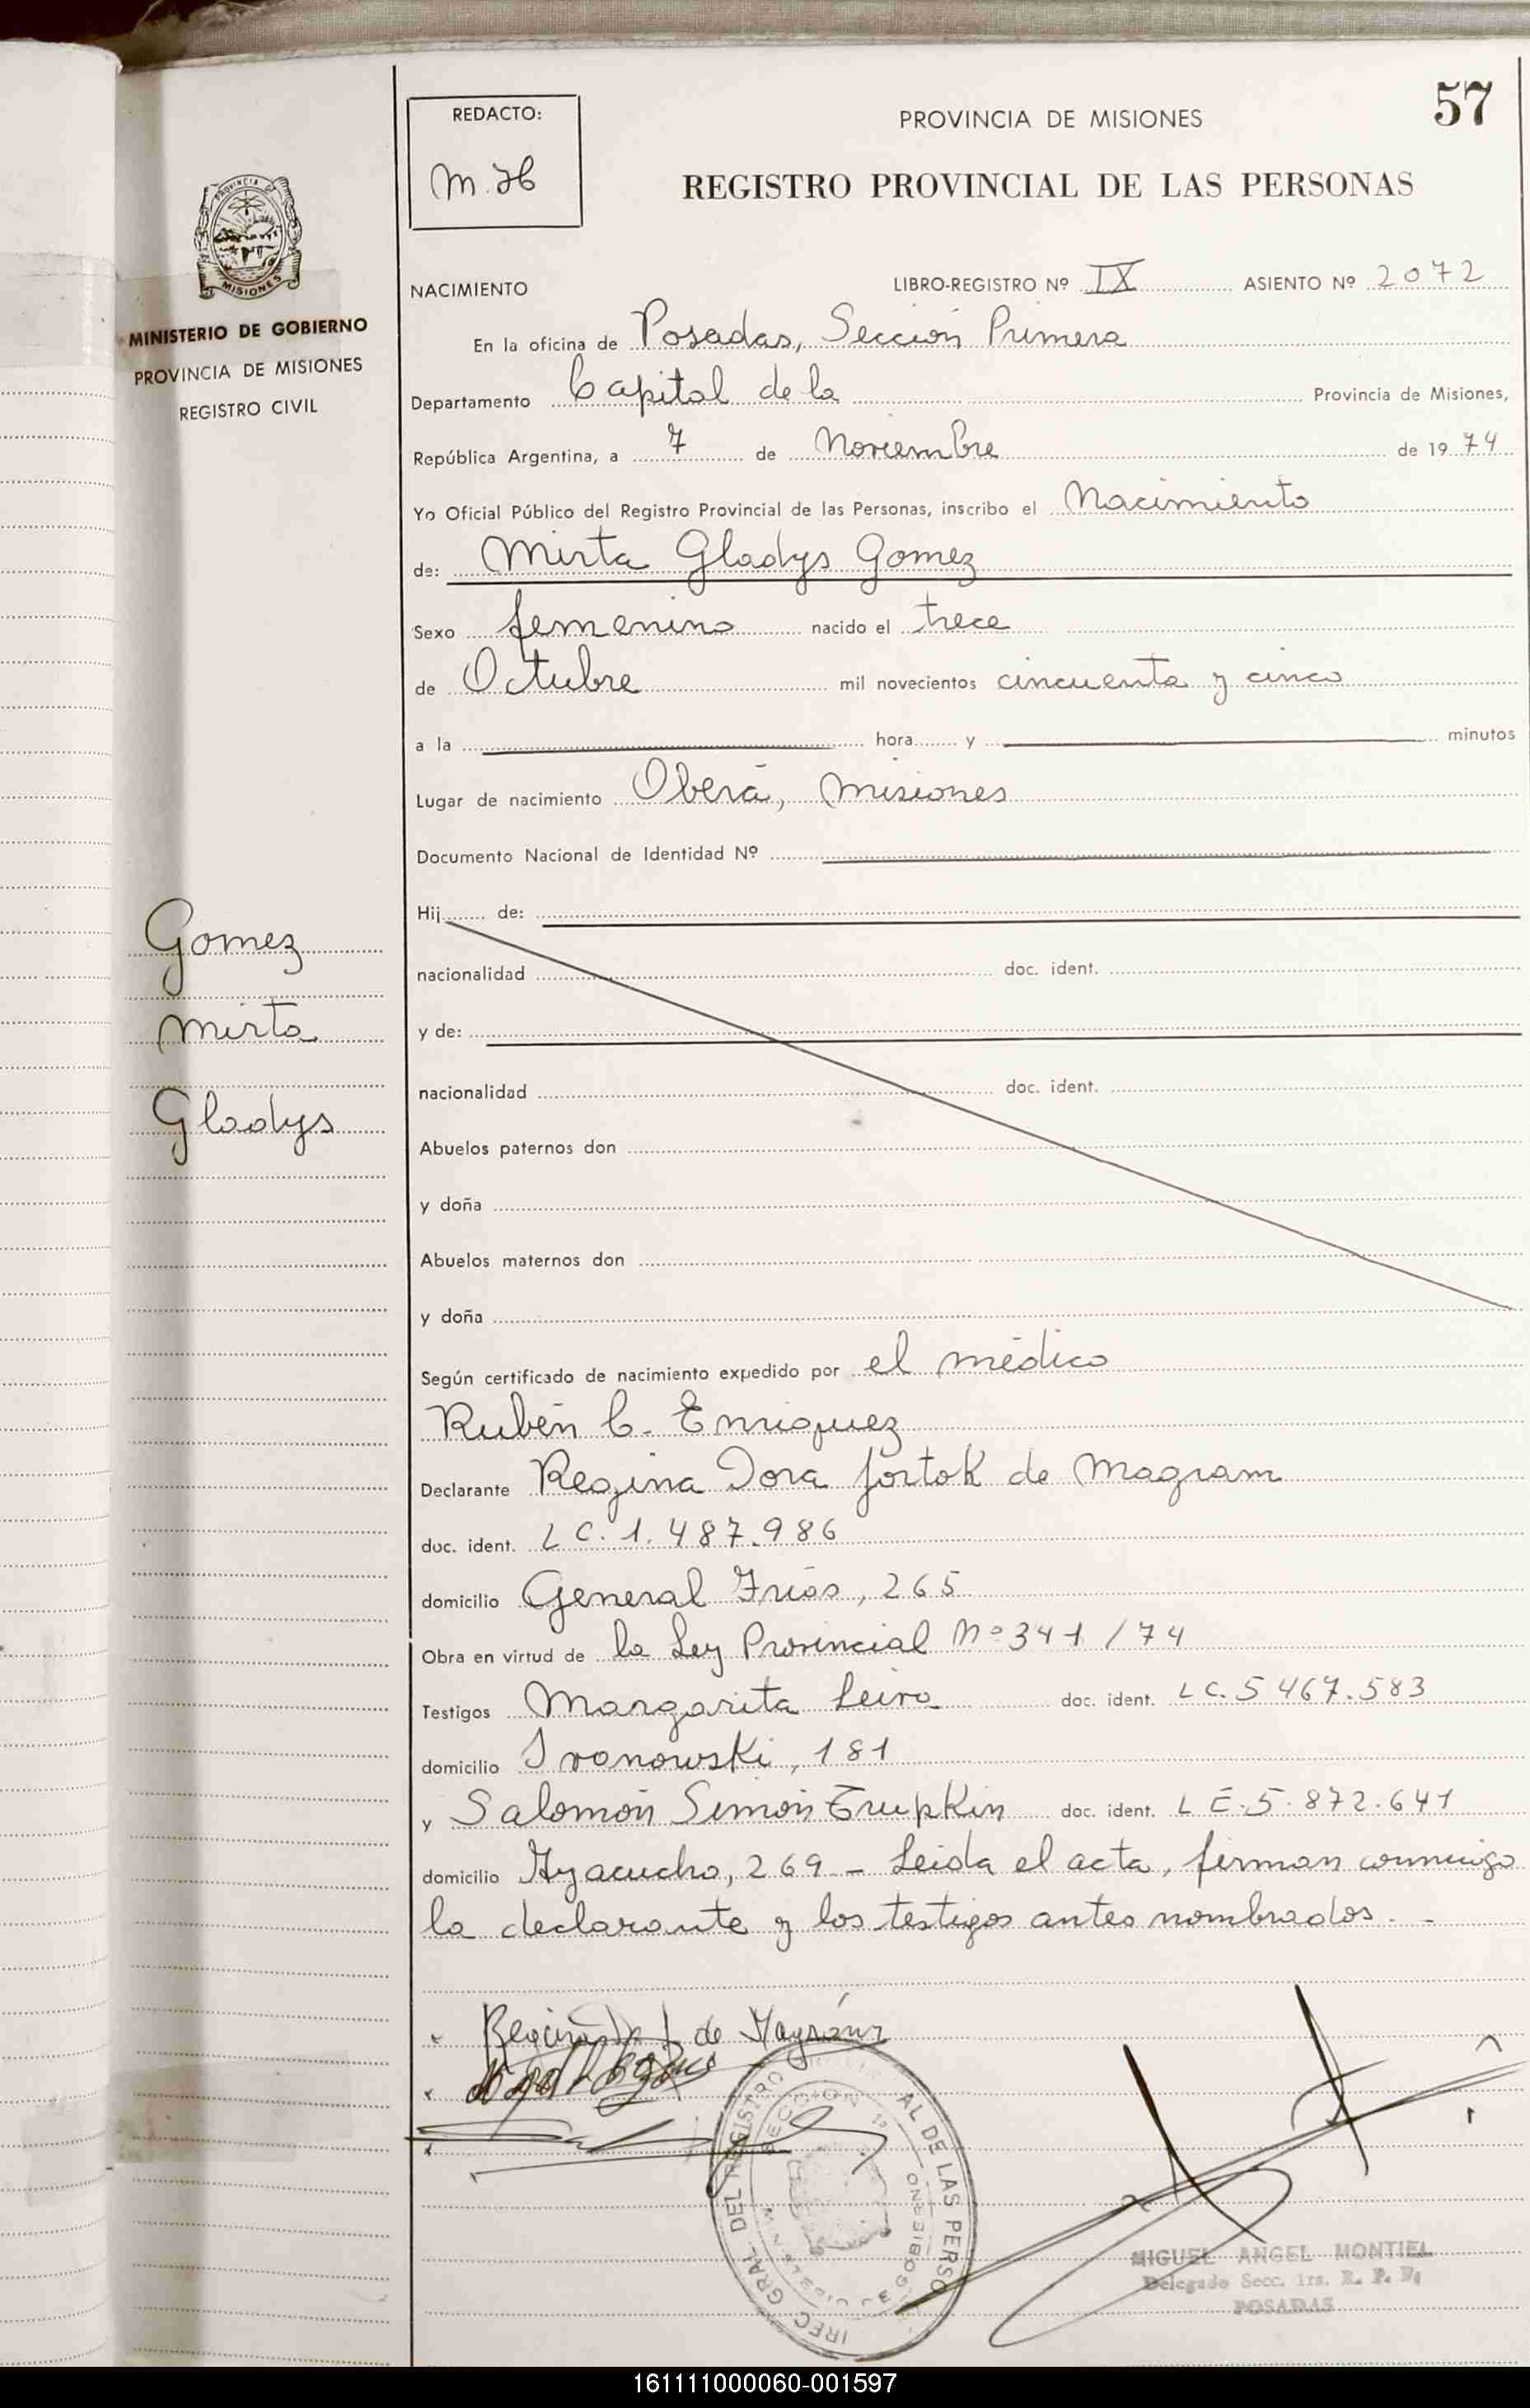 57
REDACTO:
M.H
PROVINCIA DE MISIONES
REGISTRO PROVINCIAL DE LAS PERSONAS
PROVINCIA DE
MISIONES
MINISTERIO DE GOBIERNO
PROVINCIA DE MISIONES
REGISTRO CIVIL
NACIMIENTO LIBRO-REGISTRO Nº IX ASIENTO Nº 2072
En la oficina de Posadas, Sección Primera
Departamento Capital de la Provincia de Misiones,
República Argentina, a 7 de Noviembre de 1974
Yo Oficial Público del Registro Provincial de las Personas, inscribo el Nacimiento
de: Mirta Gladys Gomez
Sexo femenino nacido el trece
de Octubre mil novecientos cincuenta y cinco
a la hora y minutos
Lugar de nacimiento Oberá, Misiones
Documento Nacional de Identidad Nº
Hij de:
nacionalidad doc. ident.
y de:
nacionalidad doc. ident.
Abuelos paternos don
y doña
Abuelos maternos don
y doña
Gomez
Mirta
Gladys
Según certificado de nacimiento expedido por el médico
Rubén C. Enriquez
Declarante Regina Dora Jortok de Magram
doc. ident. LC. 1.487.986
domicilio General Frias, 265
Obra en virtud de la Ley Provincial Nº 341/74
Testigos Margarita Leiva doc. ident. LC. 5467.583
domicilio Ivanowski, 181
y Salomón Simón Trupkin doc. ident. L E. 5.872.641
domicilio Ayacucho, 269 - Leida el acta, firman conmigo
la declarante y los testigos antes nombrados. -
de Magram
GRAL. DEL REGISTRO AL DE LAS PERSO
SECCION 1ª
GOBIERNO
MIGUEL ANGEL MONTIEL
Delegado Secc. 1ra. R. P. P.
POSADAS
161111000060-001597